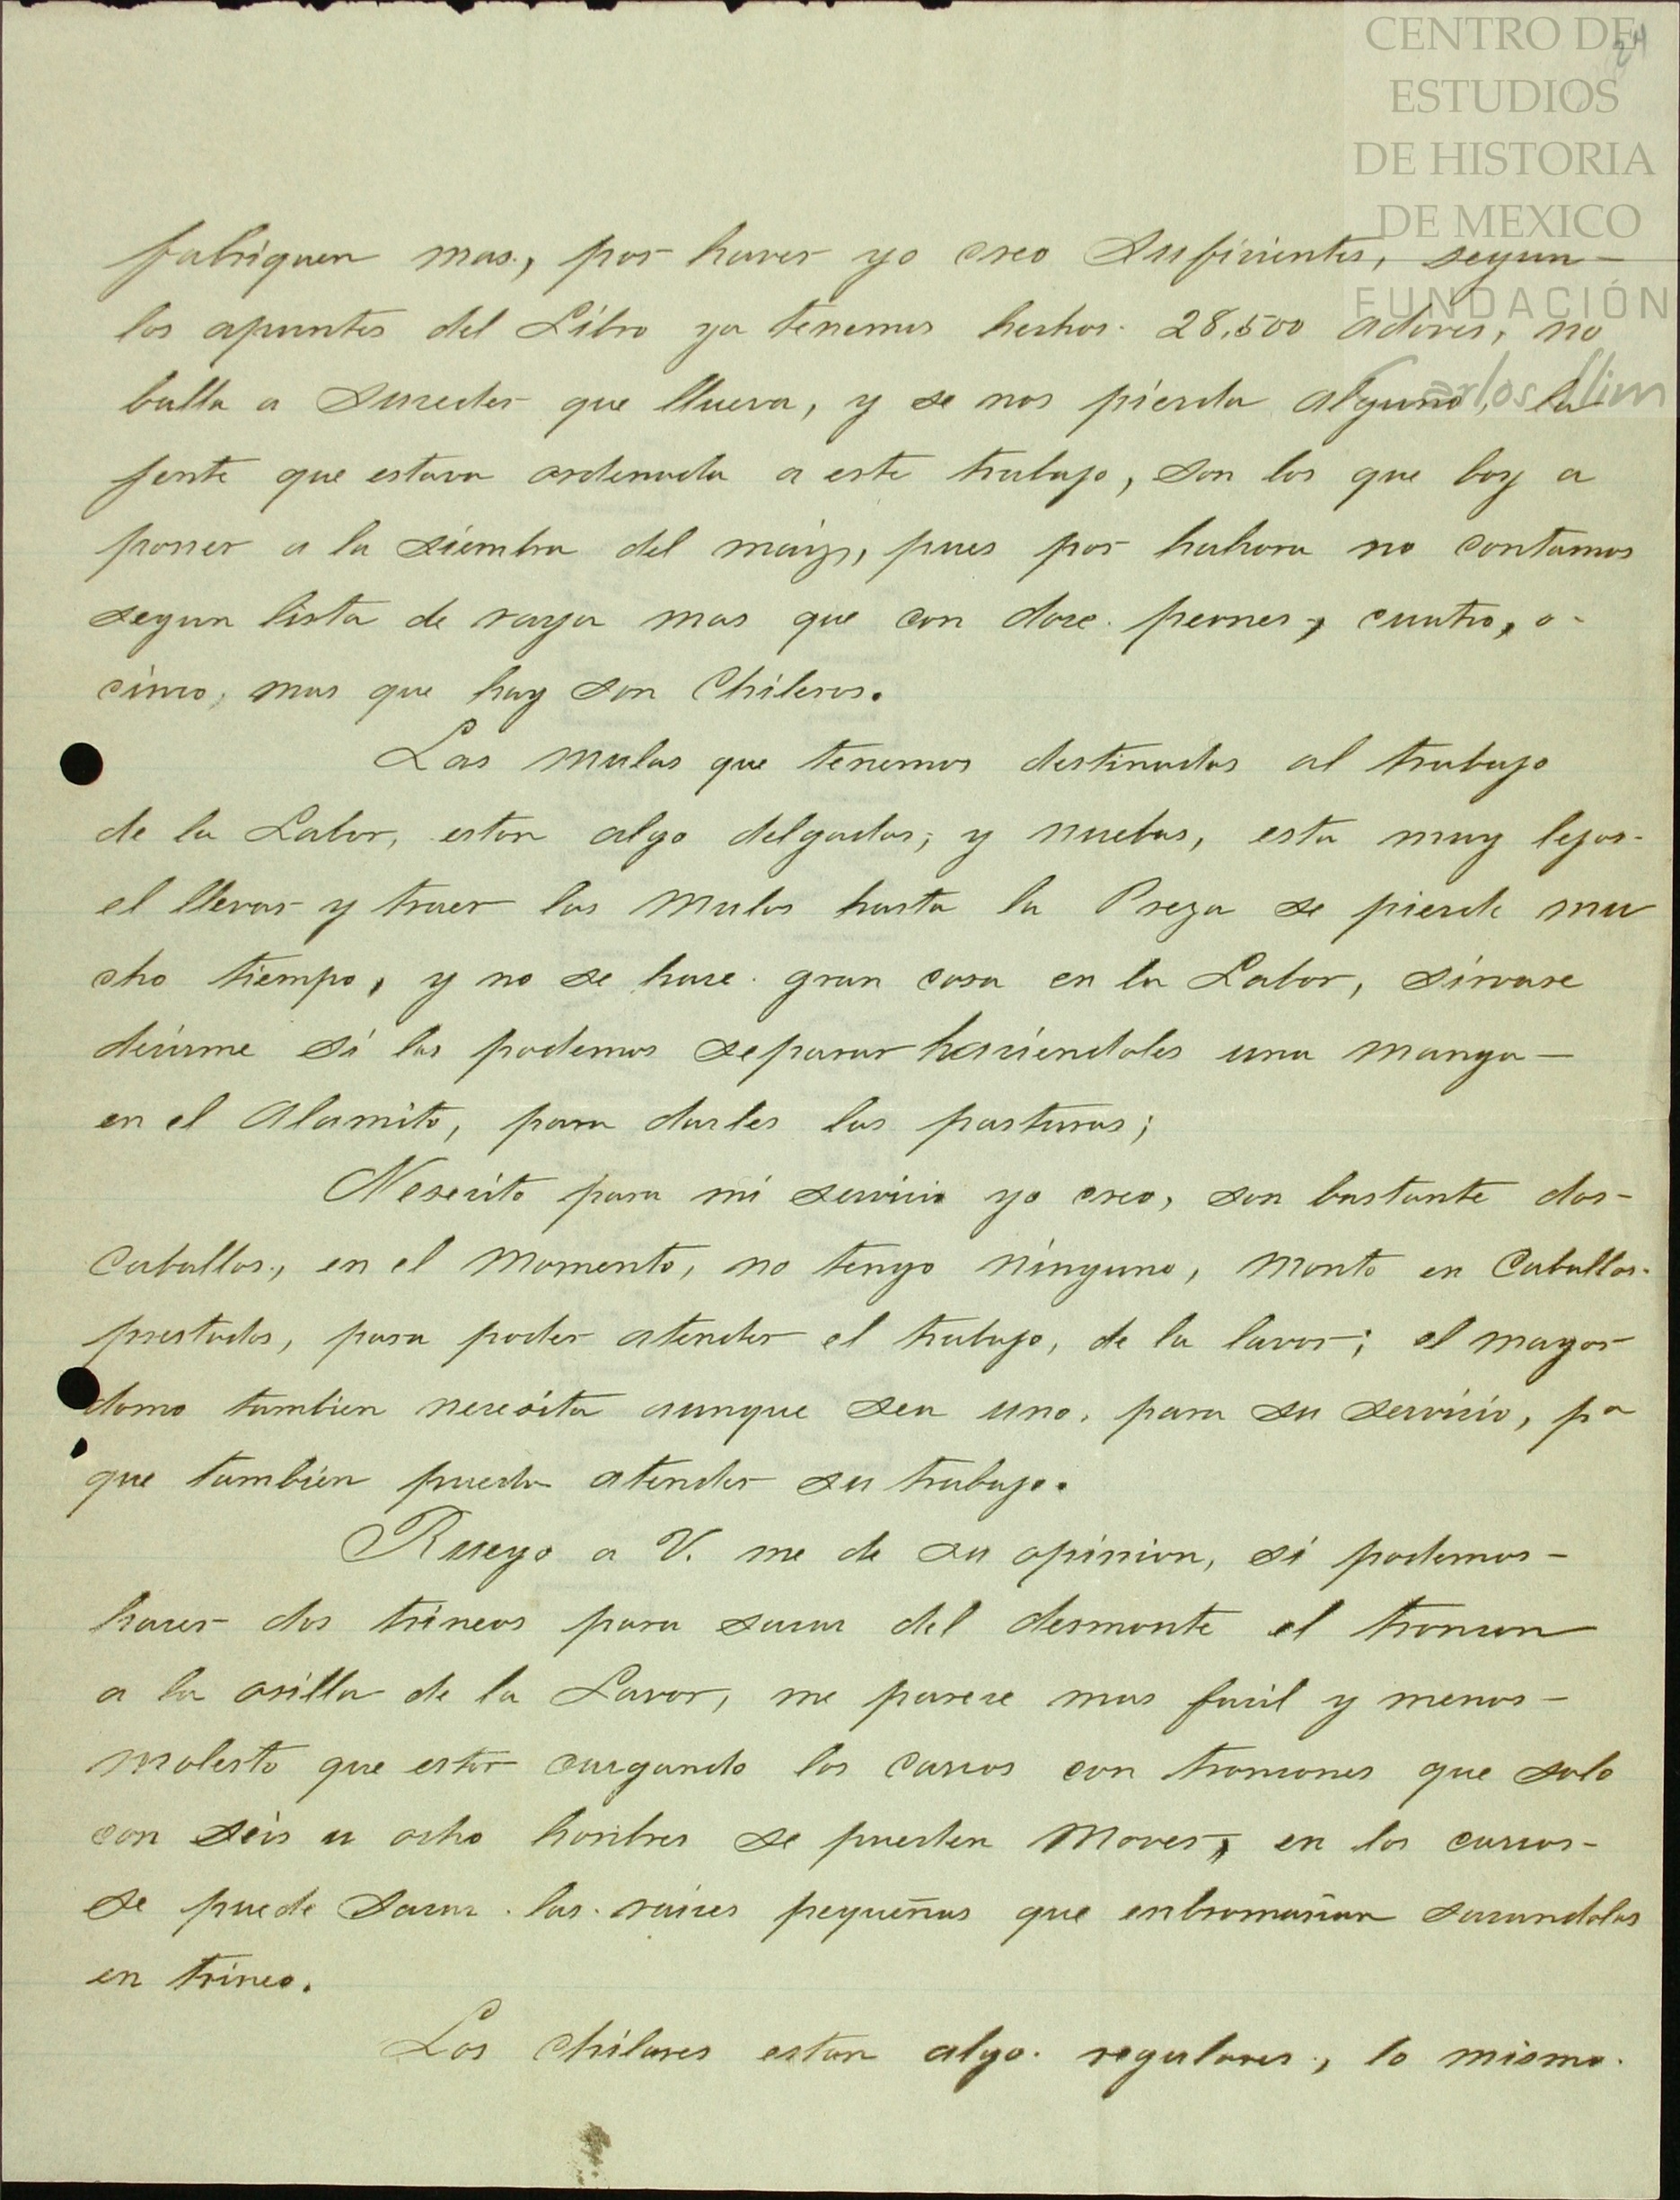 24
CENTRO DE
ESTUDIOS
DE HISTORIA
DE MEXICO
FUNDACIÓN
Carlos Slim
fabriquen mas., por haver yo creo suficientes, segun
los apuntes del Libro ya tenemos hechos. 28,500 adoves, no
balla a suceder que llueva, y se nos pierda alguno, la
jente que estava ordenada a este trabajo, son los que boy a
poner a la siembra del maiz, pues por hahora no contamos
segun lista de raya mas que con dose. peones, cuatro, o
cinco, mas que hay son Chileros.
Las mulas que tenemos destinadas al trabajo
de la Labor, estan algo delgadas, y nuebas, esta muy lejos
el llevar y traer las mulas hasta la Preza se pierde mu
cho tiempo, y no se hase. gran cosa en la Labor, sirvase
decirme si las podemos separar hasiendoles una manga
en el Alamito, para darles las pasturas;
Nesecito para mi servicio yo creo, son bastante dos
Caballos., en el momento, no tengo ninguno, monto en Caballos.
prestados, para poder atender el trabajo, de la lavor; el mayor
domo tambien necesita aunque sea uno. para su servicio, pa
que tambien pueda atender su trabajo.
Ruego a V. me de su opinion, si podemos
hacer dos trineos para sacar del desmonte el troncon
a la orilla de la Lavor, me parece mas facil y menos
molesto que estar cargando los carros con troncones que solo
con seis u ocho honbres se pueden mover, en los carros
se puede sacar. las. raices pequeñas que enbromarian sacandolas
en trineo.
Los chilares estan algo. regulares., lo mismo.